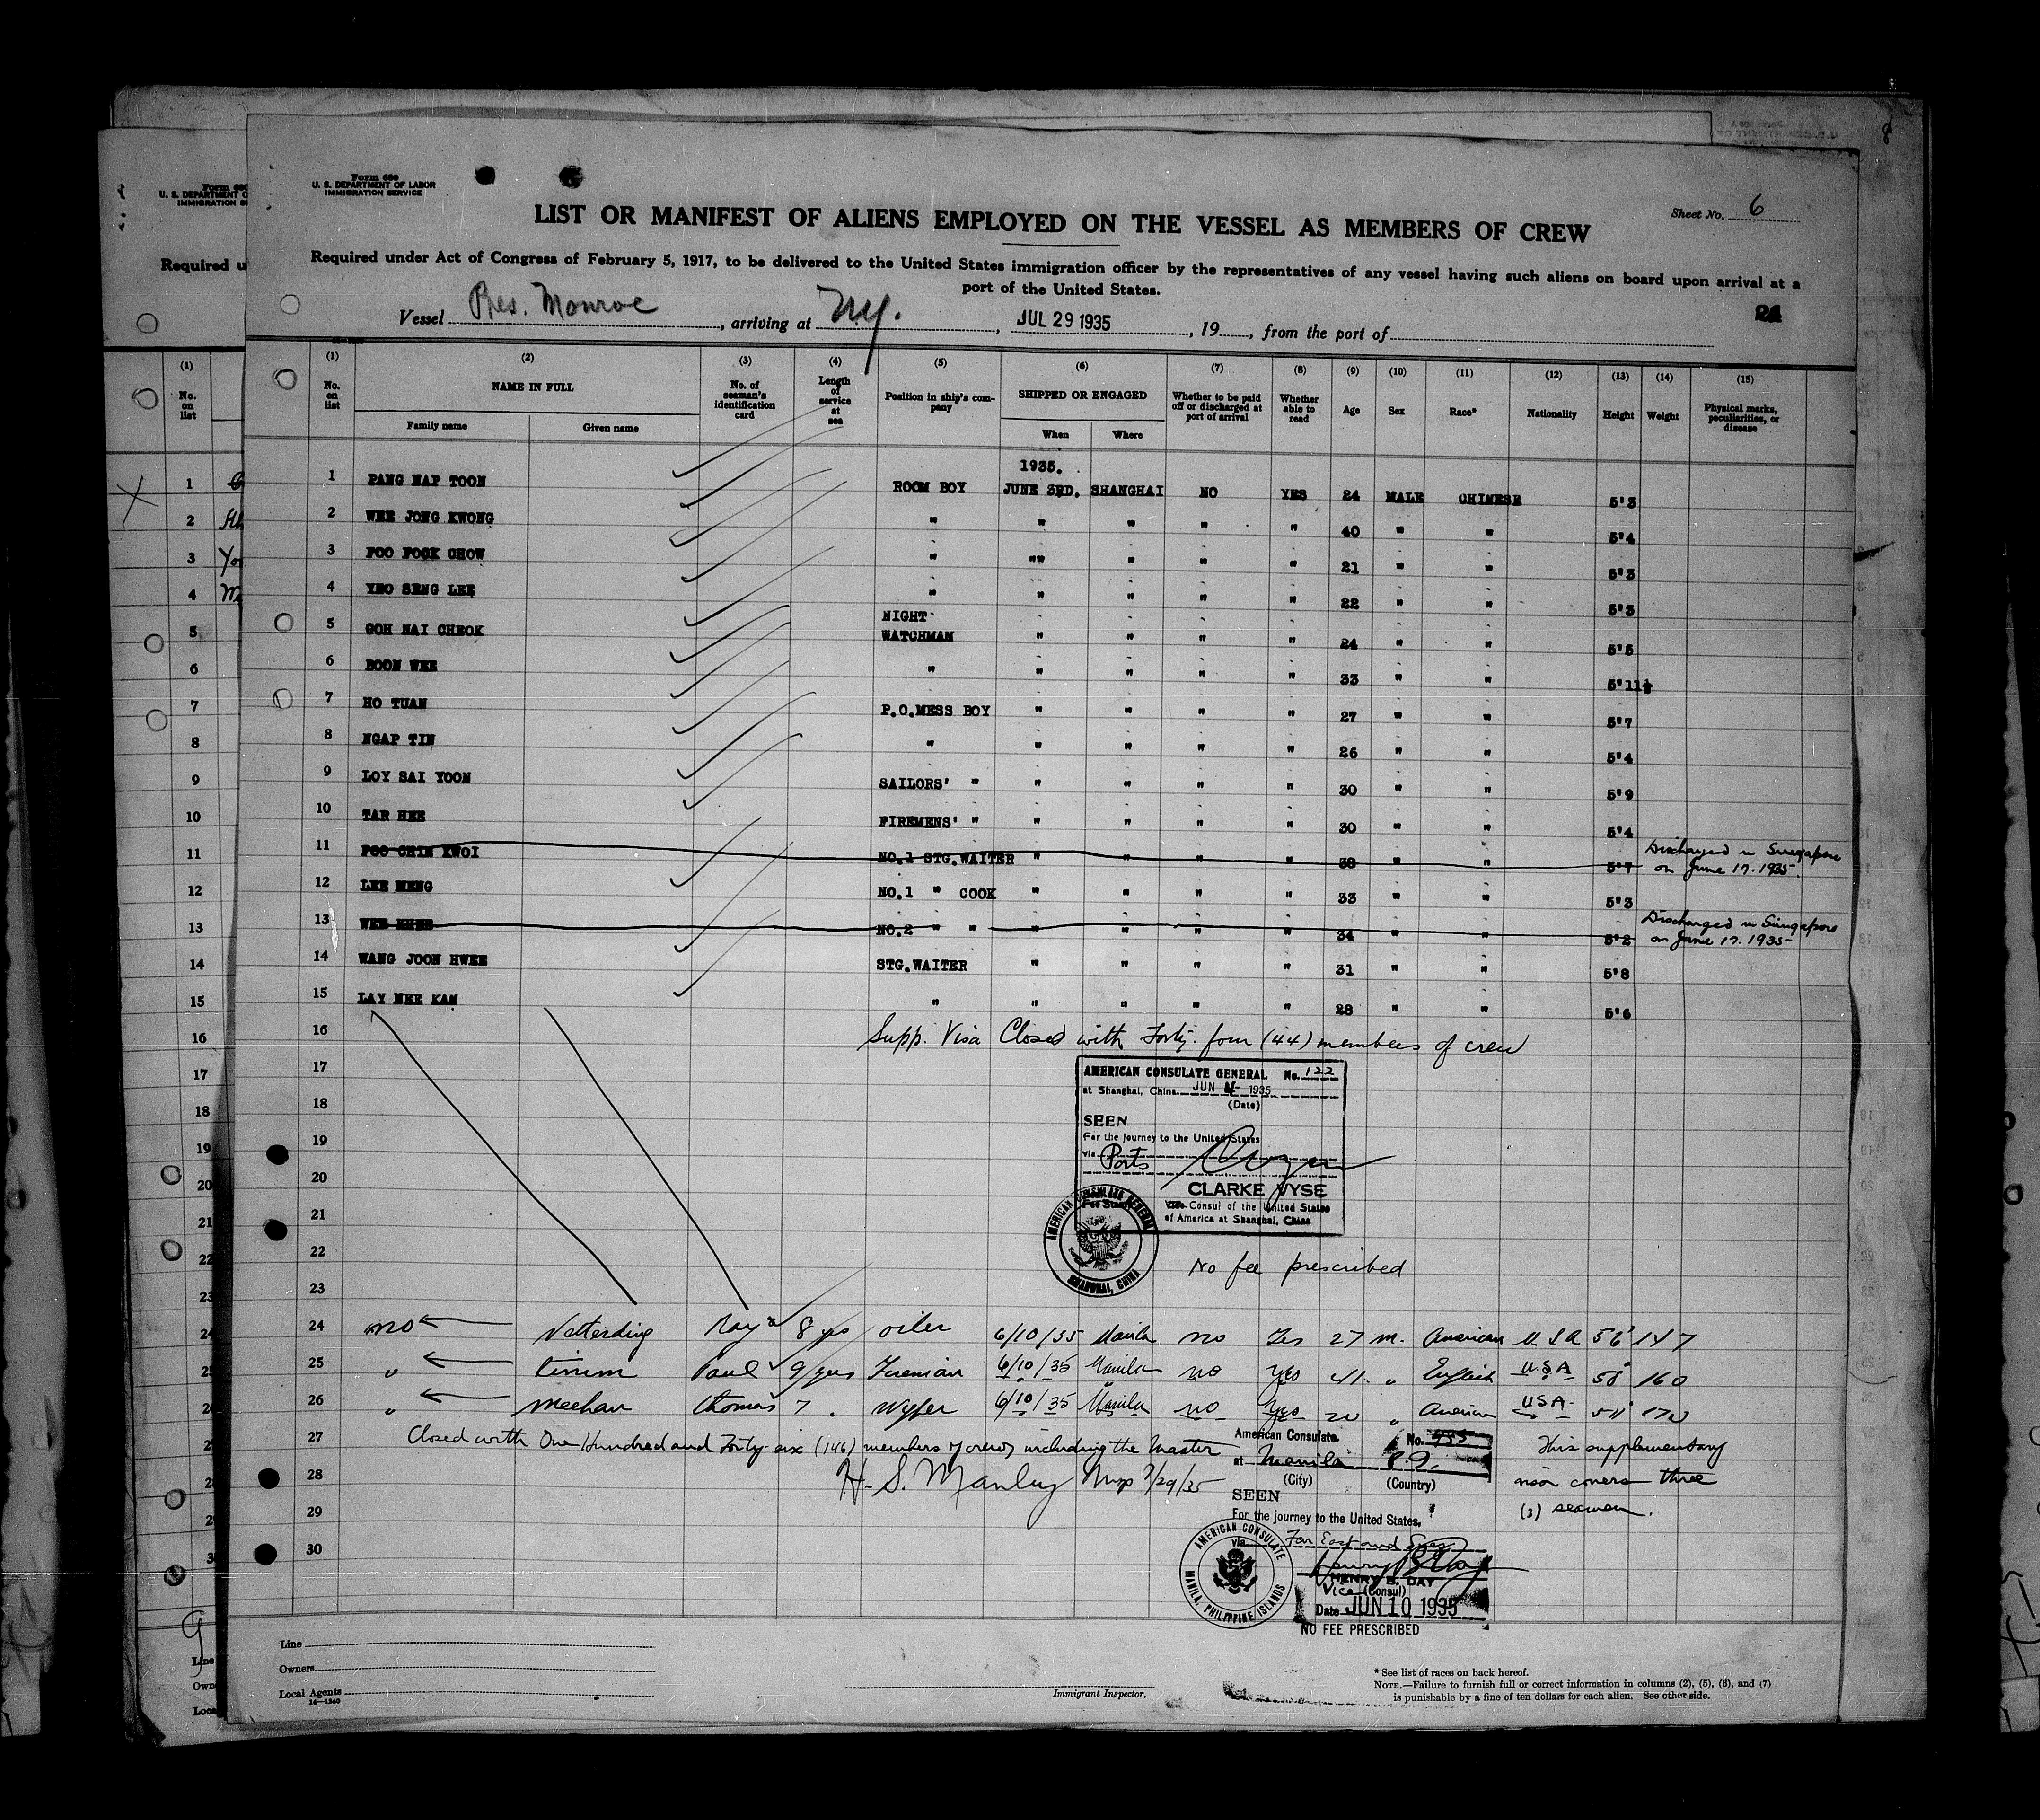 Form 680
U. S. DEPARTMENT OF LABOR
IMMIGRATION SERVICE
Sheet No. 6
LIST OR MANIFEST OF ALIENS EMPLOYED ON THE VESSEL AS MEMBERS OF CREW
Required under Act of Congress of February 5, 1917, to be delivered to the United States immigration officer by the representatives of any vessel having such aliens on board upon arrival at a
port of the United States.
Vessel Pres. Monroe, arriving at N.Y., JUL 29 1935, 19, from the port of
(1) (2) (3) (4) (5) (6) (7) (8) (9) (10) (11) (12) (13) (14) (15)
No. on list NAME IN FULL Family name Given name No. of seaman's identification card Length of service at sea Position in ship's company SHIPPED OR ENGAGED When Where Whether to be paid off or discharged at port of arrival Whether able to read Age Sex Race* Nationality Height Weight Physical marks, peculiarities, or disease
1935.
1 PANG NAP TOON ROOM BOY JUNE 3RD. SHANGHAI NO YES 24 MALE CHINESE 5'3
2 WEE JONG KWONG " " " " " 40 " " 5'4
3 FOO FOCK CHOW " "" " " " 21 " " 5'3
4 YEO SENG LEE " " " " " 22 " " 5'3
5 GOH NAI CHEOK NIGHT WATCHMAN " " " " 24 " " 5'5
6 BOON WEE " " " " " 33 " " 5'11½
7 HO TUAN P.O.MESS BOY " " " " 27 " " 5'7
8 NGAP TIN " " " " " 26 " " 5'4
9 LOY SAI YOON SAILORS' " " " " " 30 " " 5'9
10 TAR HEE FIREMENS' " " " " " 30 " " 5'4
11 FOO CHIN KWOI NO.1 STG.WAITER " " " " 38 " " 5'7 Discharged in Singapore on June 17. 1935.
12 LEE MENG NO.1 " COOK " " " " 33 " " 5'3
13 WEE KHEE NO.2 " " " " " " 34 " " 5'2 Discharged in Singapore on June 17. 1935
14 WANG JOON HWEE STG.WAITER " " " " 31 " " 5'8
15 LAY NEE KAM " " " " " 28 " " 5'6
16 Supp. Visa Closed with Forty-four (44) members of crew
17
18
19
20
21
22
23
AMERICAN CONSULATE GENERAL No. 122
at Shanghai, China. JUN 4 1935
(Date)
SEEN
For the journey to the United States
via Ports
CLARKE VYSE
Vice Consul of the United States
of America at Shanghai, China
AMERICAN CONSULATE GENERAL SHANGHAI, CHINA
No fee prescribed
24 no Vetterding Ray 8 yrs oiler 6/10/35 Manila no Yes 27 m. American U S A 5'6 147
25 " Paul 9 yrs Fireman 6/10/35 Manila no Yes 41 " English U.S.A 5'8 160
26 " Meehan Thomas 7 " Wiper 6/10/35 Manila no Yes 20 " American USA. 5'11 170
27 Closed with One Hundred and Forty-six (146) members of crew, including the Master
28 H. S. Manley 7/29/35
29
30
American Consulate No.
at Manila P.I.
(City) (Country)
SEEN
For the journey to the United States,
via Far East and
HENRY B. DAY
Vice (Consul)
Date JUN 10 1935
NO FEE PRESCRIBED
AMERICAN CONSULATE MANILA, PHILIPPINE ISLANDS
This supplementary
visa covers three
(3) seamen.
Line
Owners
Local Agents
14—1240
Immigrant Inspector.
* See list of races on back hereof.
NOTE.—Failure to furnish full or correct information in columns (2), (5), (6), and (7)
is punishable by a fine of ten dollars for each alien. See other side.